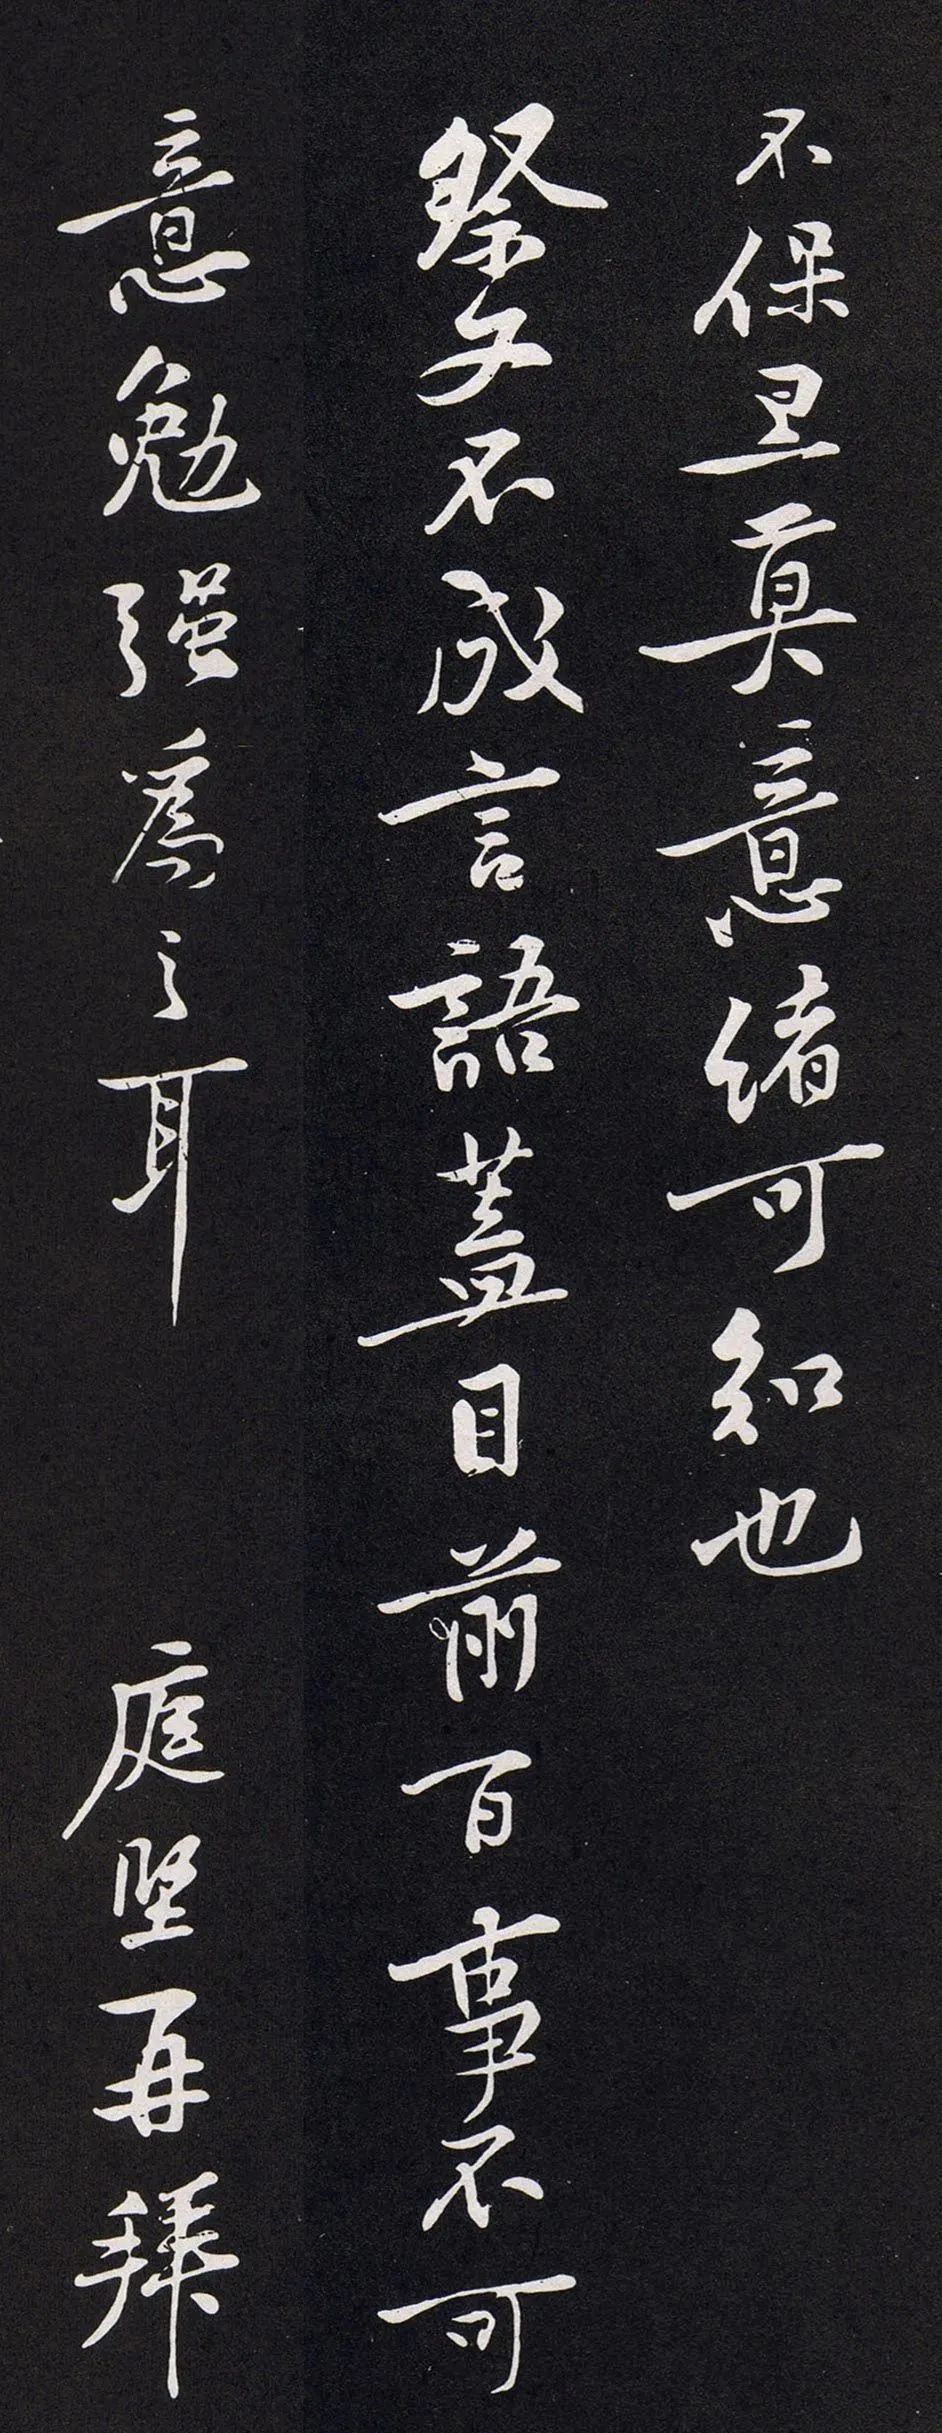 不保旦莫意緒可知也
祭文不成言語蓋目前百事不可
意勉強爲之耳 庭堅再拜